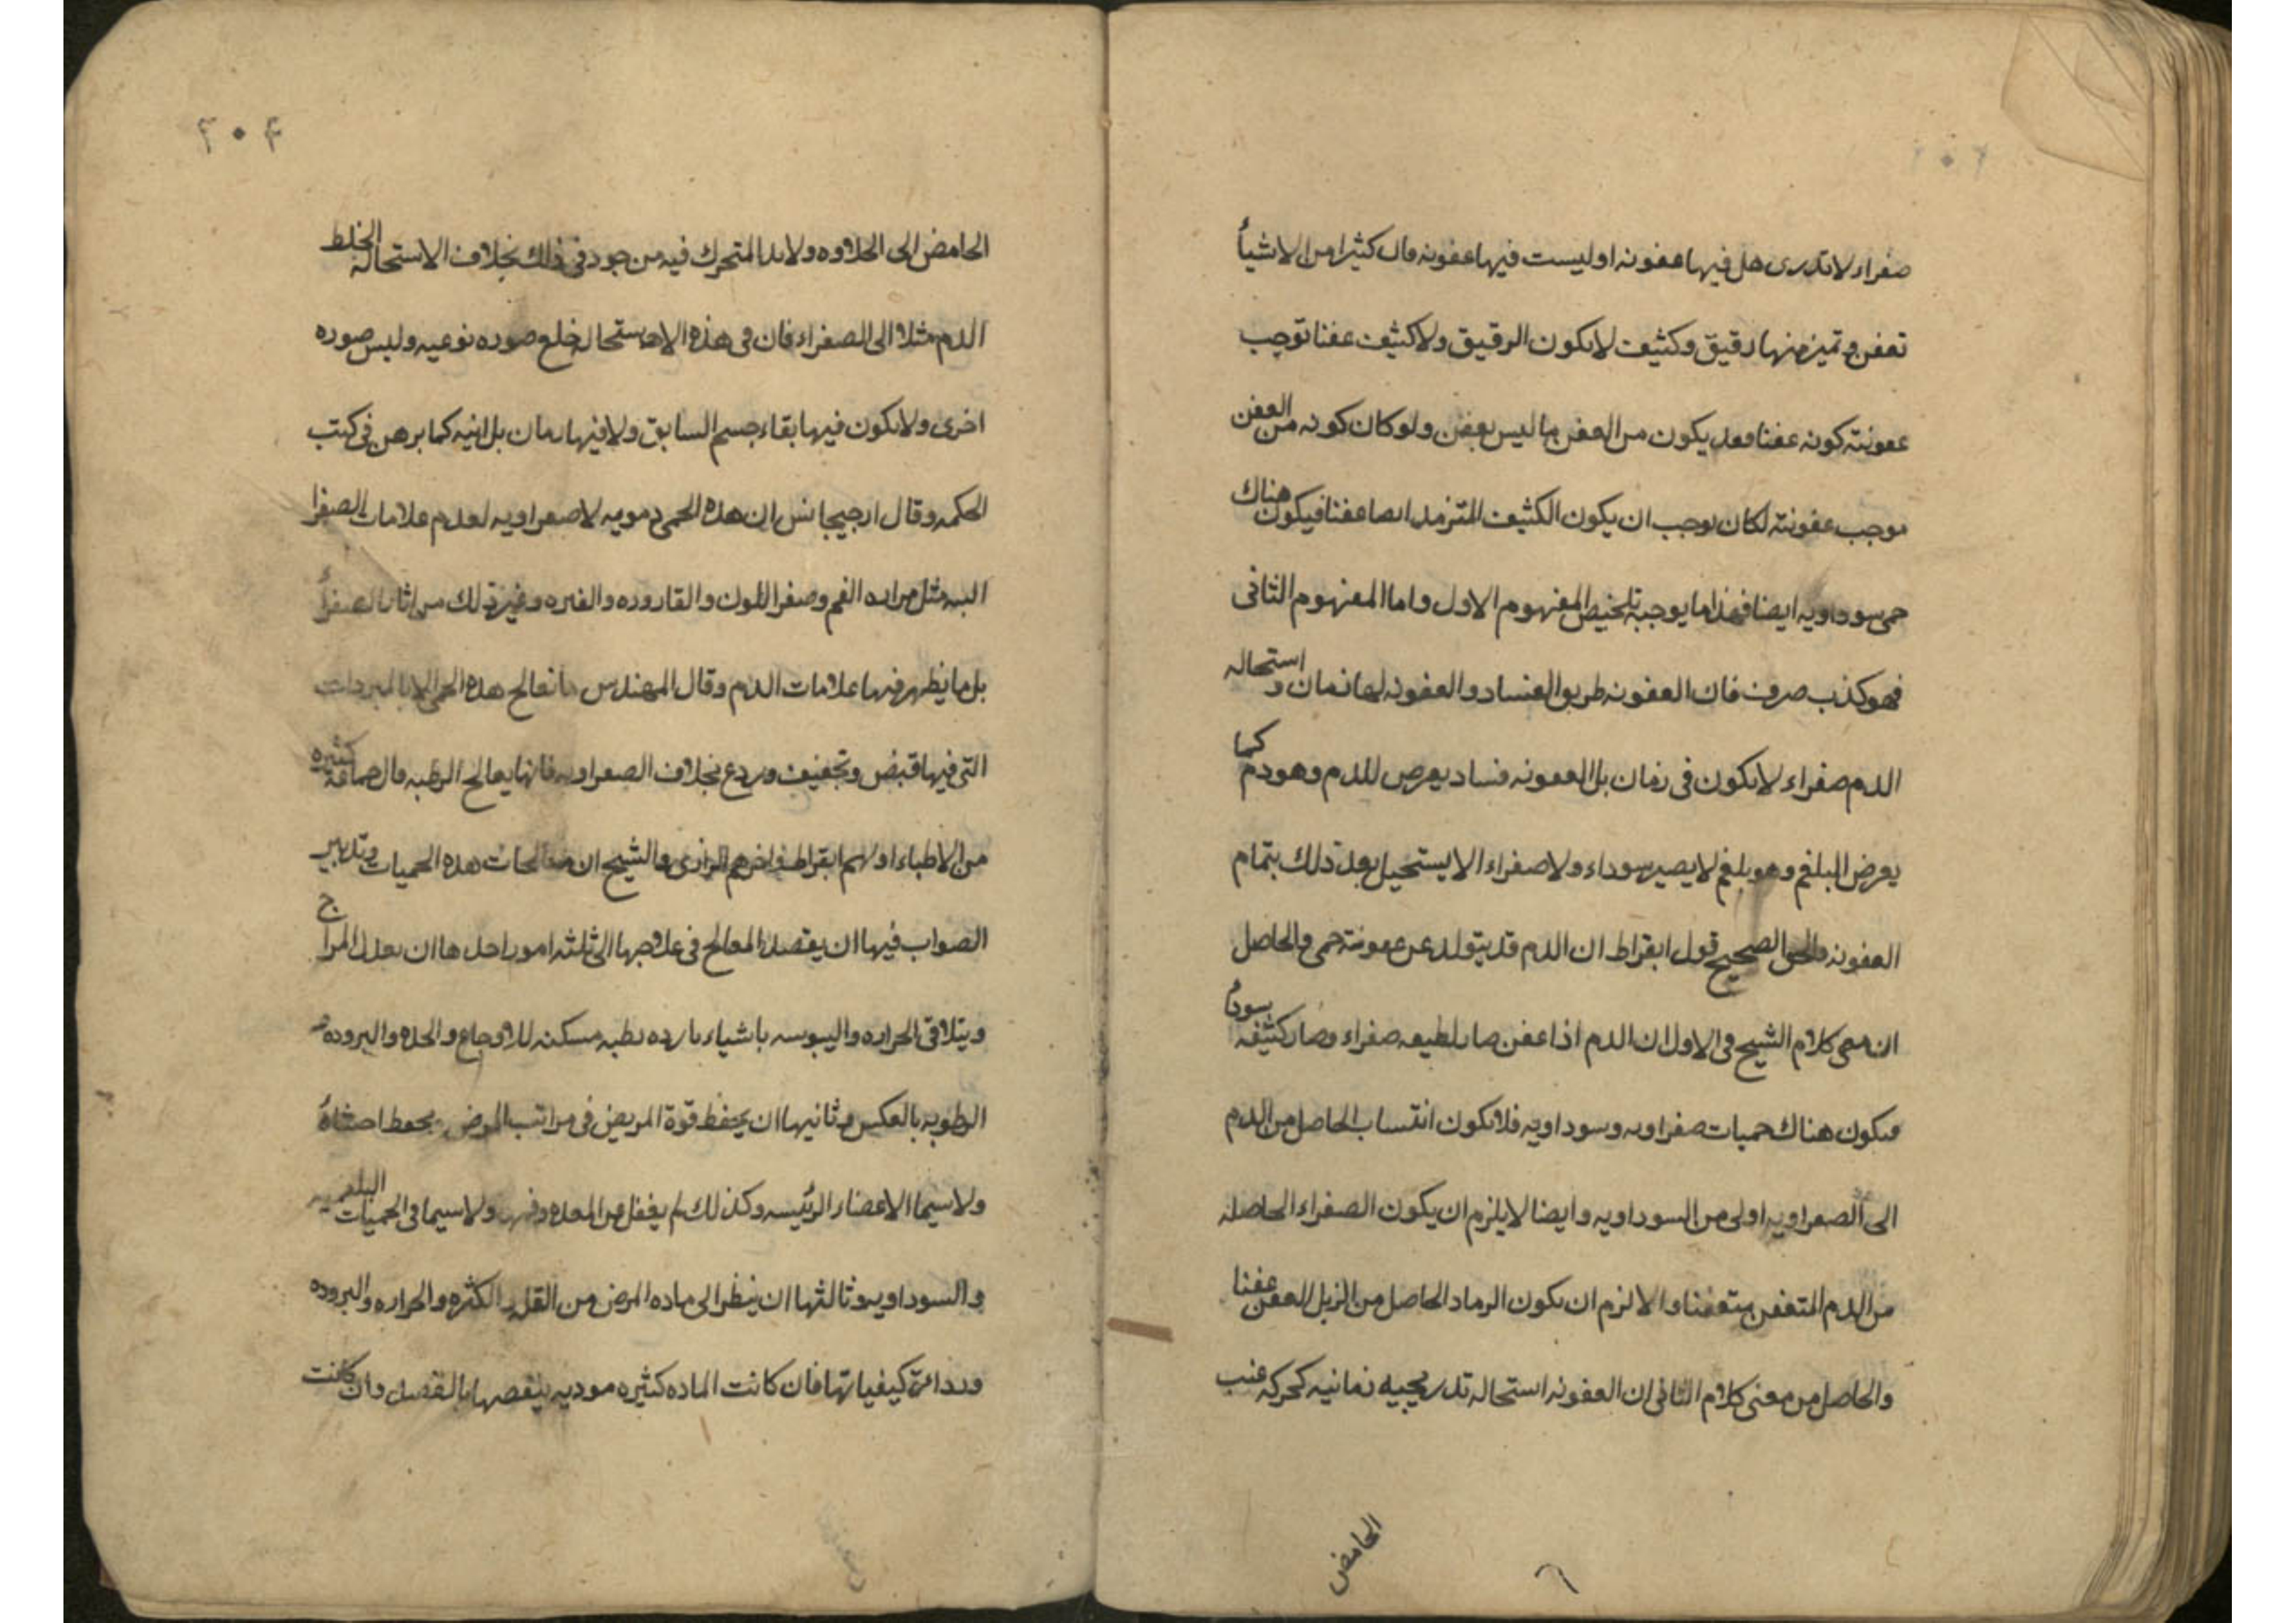 صفراء لا تدرى هل فيها عفونه او ليست فيها عفونه قال كثيرا من الاشيأ
تعفن و تميز منها رقيق وكثيف لا يكون الرقيق ولا كثيف عفنا توجب
عفونته كونه عفنا فقد يكون من العفن ما ليس بعفن ولو كان كونه من العفن
موجب عفونته لكان توجب ان يكون الكثيف المترمد ايضا عفنا فيكون هناك
حمى سوداويه ايضا فهذا ما يوجبه تلخيص المفهوم الاول واما المفهوم الثانى
فهو كذب صرف فان العفونه طريق الفساد والعفونه لها زمان و استحاله
الدم صفراء لا يكون فى زمان بل العفونه فساد يعرض للدم وهو دم كما
يعرض البلغم وهو بلغم لا يصير سوداء ولا صفراء الا يستحيل بعد ذلك بتمام
العفونه والحق الصحيح قول ابقراط ان الدم قد يتولد عن عفونته حمى والحاصل
ان معنى كلام الشيخ فى الاول ان الدم اذا عفن صار لطيفه صفراء وصار كثيفه سودأ
فيكون هناك حميات صفراويه وسوداويه فلا يكون انتساب الحاصل من الدم
الى الصفراويه اولى من السوداويه وايضا لا يلزم ان يكون الصفراء الحاصله
من الدم المتعفن متعفنا والا لزم ان يكون الرماد الحاصل من الزبل العفن عفنا
والحاصل من معنى كلام الثانى ان العفونه استحاله تدريجيه زمانيه كحركه عنب
الحامض
۲۰۴
الحامض الى الحلاوه ولا بد المتحرك فيه من جود فى ذلك بخلاف الاستحاله الخلط
الدم مثلا الى الصفراء فان فى هذه الاستحاله خلع صوره نوعيه ولبس صوره
اخرى ولا يكون فيها بقاء جسم السابق ولا فيها زمان بل انيه كما برهن فى كتب
الحكمه وقال ارجيجانس ان هذه الحمى دمويه لا صفراويه لعدم علامات الصفرا
البه مثل مراره الفم وصفرا اللون والقاروره والغيره وغير ذلك من اثار الصفرأ
بل ما يظهر فيها علامات الدم وقال المهندس ما تعالج هذه الحمى الا بالمبردات
التى فيها قبض وتجفيف وردع بخلاف الصفراويه فانها يعالج الرطبه قال جماعة كثيره
من الاطباء اولهم ابقراط واخرهم الرازى والشيخ ان معالجات هذه الحميات وتدبير
الصواب فيها ان يقصد المعالج فى علاجها الى ثلثه امور احدها ان يعدل المزاج
ويتلافى الحراره واليبوسه باشياء بارده رطبه مسكنه للاوجاع والحده والبروده و
الرطوبه بالعكس و ثانيها ان يحفظ قوة المريض فى مراتب المرض بحفظ اعضاءه
ولا سيما الاعضاء الرئيسه وكذلك لم يغفل من المعده وفمه ولا سيما فى الحميات البلغميه
والسوداويه و ثالثها ان ينظر الى ماده المرض من القله والكثره والحراره والبروده
ورداءة كيفياتها فان كانت الماده كثيره موديه ينقصها بالفصل وان كانت